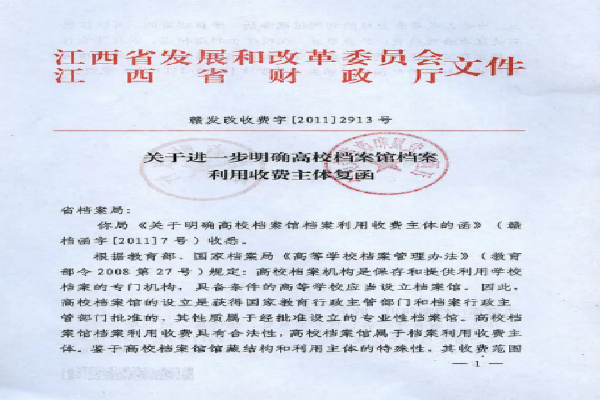 江西省发展和改革委员会文件
江西省财政厅
赣发改收费字[2011]2913号
关于进一步明确高校档案馆档案
利用收费主体复函
省档案局：
你局《关于明确高校档案馆档案利用收费主体的函》（赣
档函字[2011]7号）收悉。
根据教育部、国家档案局《高等学校档案管理办法》（教育
部令2008第27号）规定：高校档案机构是保存和提供利用学校
档案的专门机构，具备条件的高等学校应当设立档案馆。因此，
高校档案馆的设立是获得国家教育行政主管部门和档案行政主
管部门批准的，其性质属于经批准设立的专业性档案馆。高校档
案馆档案利用收费具有合法性，高校档案馆属于档案利用收费主
体。鉴于高校档案馆馆藏结构和利用主体的特殊性，其收费范围
— 1 —